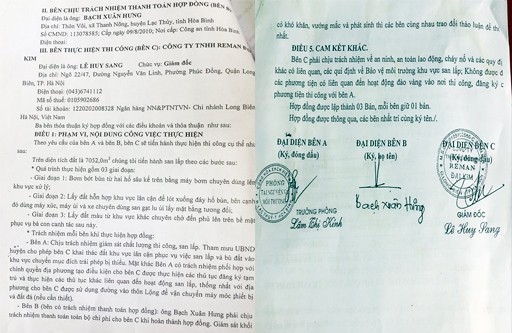 II. BÊN CHỊU TRÁCH NHIỆM THANH TOÁN HỢP ĐỒNG (BÊN
Đại diện là ông: BẠCH XUÂN HƯNG
Địa chỉ: Thôn Vôi, xã Thanh Nông, huyện Lục Thủy, tỉnh Hòa Bình
Số CMND: 113078583; Cấp ngày 09/8/2010; Nơi cấp: CA tỉnh Hòa Bình
Điện thoại:
III. BÊN THỰC HIỆN THI CÔNG (BÊN C): CÔNG TY TNHH REMAN Đ
KIM
Đại diện là ông: LÊ HUY SANG Chức vụ: Giám đốc
Địa chỉ: Ngõ 22/47, Đường Nguyễn Văn Linh, Phường Phúc Đồng, Quận Long
Biên, TP. Hà Nội
Điện thoại: (043)6741112
Mã số thuế: 0105902686
Số tài khoản: 1220202008328 Ngân hàng NN&PTNTVN- Chi nhánh Long Biên
Hà Nội, Việt Nam
Ba bên thỏa thuận ký hợp đồng với các điều khoản và thỏa thuận như sau:
ĐIỀU 1: PHẠM VI, NỘI DUNG CÔNG VIỆC THỰC HIỆN
Theo yêu cầu của bên A và bên B, bên C sẽ tiến hành thực hiện thi công cụ thể như
sau:
Trên diện tích đất là 7052,0m² chúng tôi tiến hành san lấp theo các bước sau:
* Quá trình thực hiện gồm 03 giai đoạn:
- Giai đoạn 1: Bơm bớt bùn từ hai hố sâu kể trên bằng máy bơm chuyên dùng lên
khu vực xử lý;
- Giai đoạn 2: Lấy đất hỗn hợp khu vực lân cận để lót xuống đáy hố bùn, bên cạnh
đó dùng máy xúc, máy ủi và xe chuyên dùng san gạt lu ủi lấy mặt bằng tương đối;
- Giai đoạn 3: Lấy đất màu từ khu vực khác chuyên chở đến phủ lên trên bề mặt
phục vụ bà con canh tác sau này.
* Trách nhiệm mỗi bên khi thực hiện hợp đồng:
- Bên A: Chịu trách nhiệm giám sát chất lượng thi công, san lấp. Tham mưu UBND
huyện cho phép bên C khai thác đất khu vực lân cận phục vụ việc san lấp và bù đất vào
khu vực chuyển mục đích trái phép bị thiếu. Mặt khác Bên A có trách nhiệm phối hợp với
chính quyền địa phương tạo điều kiện cho bên C được thực hiện các thủ tục đăng ký tạm
trú và thực hiện các thủ tục khác liên quan đến hoạt động san lấp, thống nhất với địa
phương cho bên C được sử dụng đường vào thôn Lộng để vận chuyển máy móc thiết bị
và đất đá (nếu cần thiết).
- Bên B (bên có trách nhiệm thanh toán hợp đồng): ông Bạch Xuân Hưng phải chịu
trách nhiệm thanh toán toàn bộ chi phí cho bên C khi hoàn thành hợp đồng. Giám sát khối
có khó khăn, vướng mắc và phát sinh thì các bên cùng nhau trao đổi thảo luận để th
nhất.
ĐIỀU 5. CAM KẾT KHÁC.
Bên C phải chịu trách nhiệm về an ninh, an toàn lao động, cháy nổ và các quy đị
khác có liên quan, các qui định về Bảo vệ môi trường khu vực san lấp; Không được đ
các phương tiện có liên quan đến hoạt động đào vàng vào nơi thi công, đăng ký c
phương tiện thi công với bên A.
Hợp đồng được lập thành 03 Bản, mỗi bên giữ 01 bản.
Hợp đồng được thông qua, các bên nhất trí cùng ký tên./.
ĐẠI DIỆN BÊN A ĐẠI DIỆN BÊN B ĐẠI DIỆN BÊN C
(Ký, đóng dấu) (Ký, họ tên) (Ký, đóng dấu)
PHÒNG
TÀI NGUYÊN
MÔI TRƯỜNG
REMAN
ĐẠI KIM
Bạch Xuân Hưng
TRƯỞNG PHÒNG
GIÁM ĐỐC
Lê Huy Sang